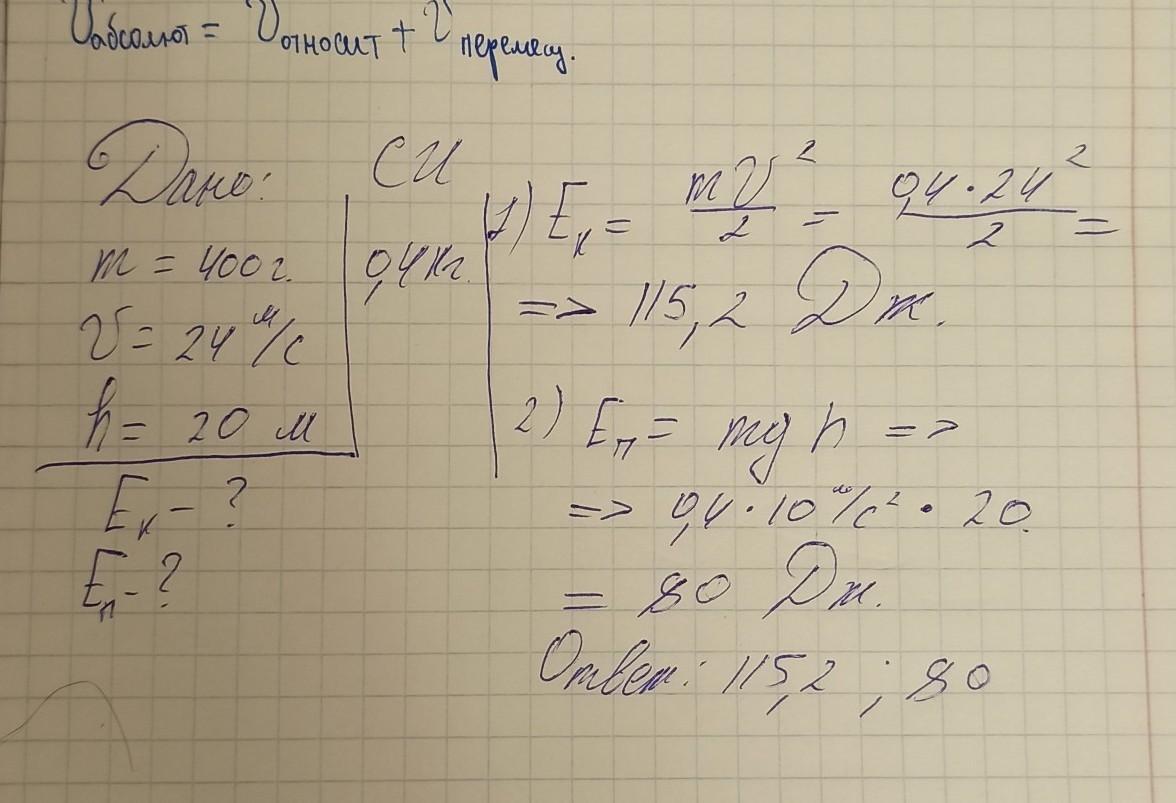 Vабсолют = Vотносит + Vперемещ.
Дано:
m = 400г.
V = 24 м/с
h = 20 м
Eк - ?
Eп - ?
СИ
0,4кг.
1) Eк = mV²/2 = 0,4·24²/2 =
=> 115,2 Дж.
2) Eп = mgh =>
=> 0,4·10 м/с² · 20.
= 80 Дж.
Ответ: 115,2 ; 80